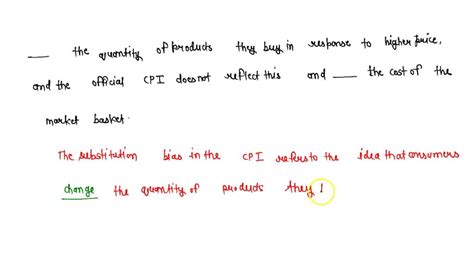 ___ the quantity of products they buy in response to higher price,
and the official CPI does not reflect this and ___ the cost of the
market basket.
The substitution bias in the CPI refers to the idea that consumers
change the quantity of products they